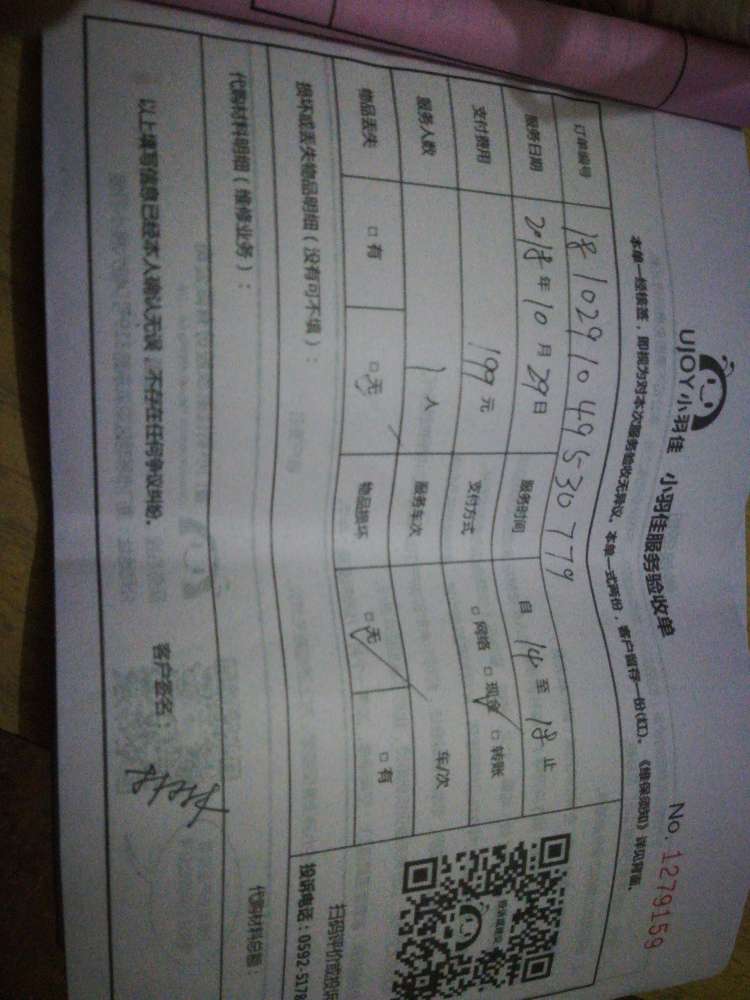 UJOY小羽佳 小羽佳服务验收单 No. 1279159
本单一经核签，即视为对本次服务验收无异议。本单一式两份，客户留存一份(红)。《维保须知》详见背面。
订单编号 181029104953077 9
服务日期 2018年10月29日 服务时间 自 14 至 18 止
支付费用 199元 支付方式 □网络 □现金 □转账
服务人数 1人 服务车次 车/次
物品丢失 □有 □无 物品损坏 □无 □有
损坏或丢失物品明细（没有可不填）：
扫码评价或投诉
投诉电话：0592-5178
代购材料明细（维修业务）： 代购材料总额：
以上填写信息已经本人确认无误，不存在任何争议纠纷。 客户签名：